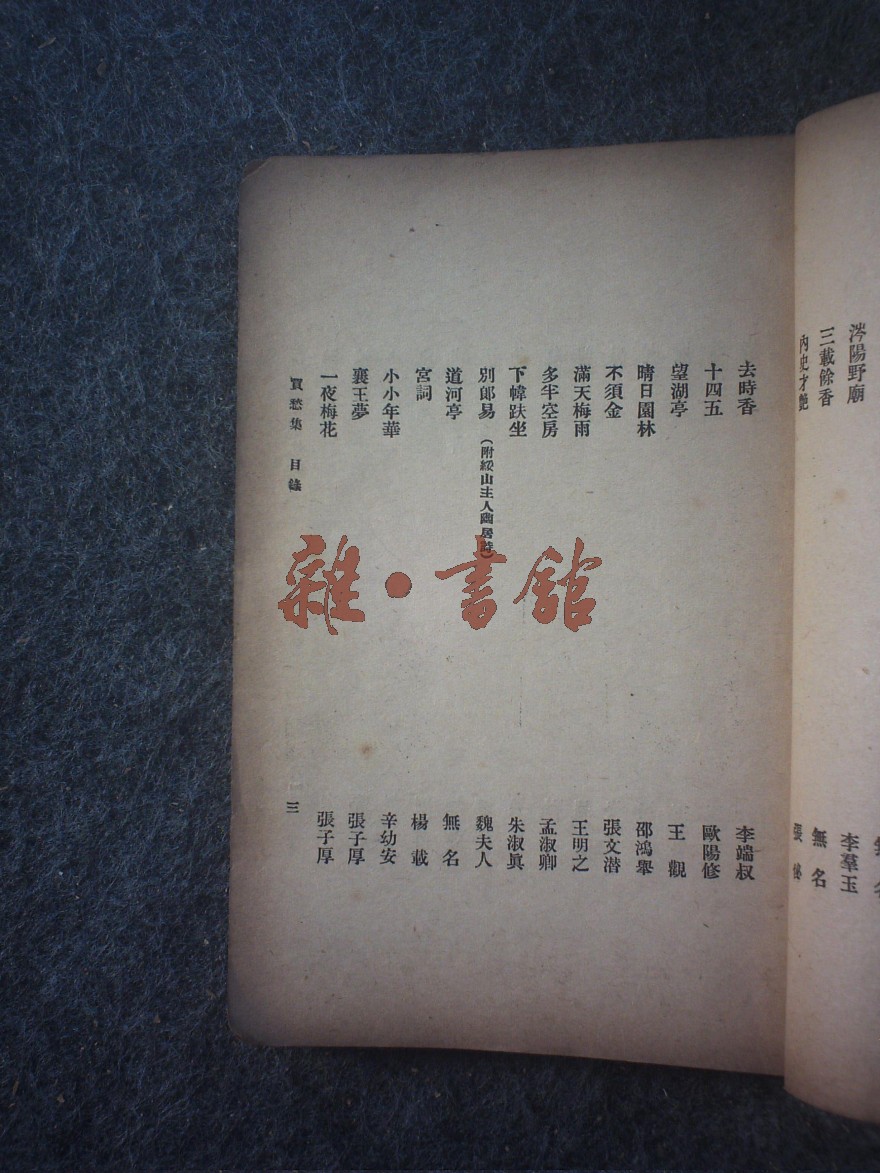 涔陽野廟
三載餘香
內史才艷
無名
李羣玉
無名
去時香 李端叔
十四五 歐陽修
望湖亭 王觀
晴日園林 邵鴻舉
不須金 張文潛
滿天梅雨 王明之
多半空房 孟淑卿
下幃趺坐 朱淑眞
別郎易(附綏山主人幽居詩) 魏夫人
道河亭 無名
宮詞 楊載
小小年華 辛幼安
襄王夢 張子厚
一夜梅花 張子厚
買愁集 目錄 三
雜·書館